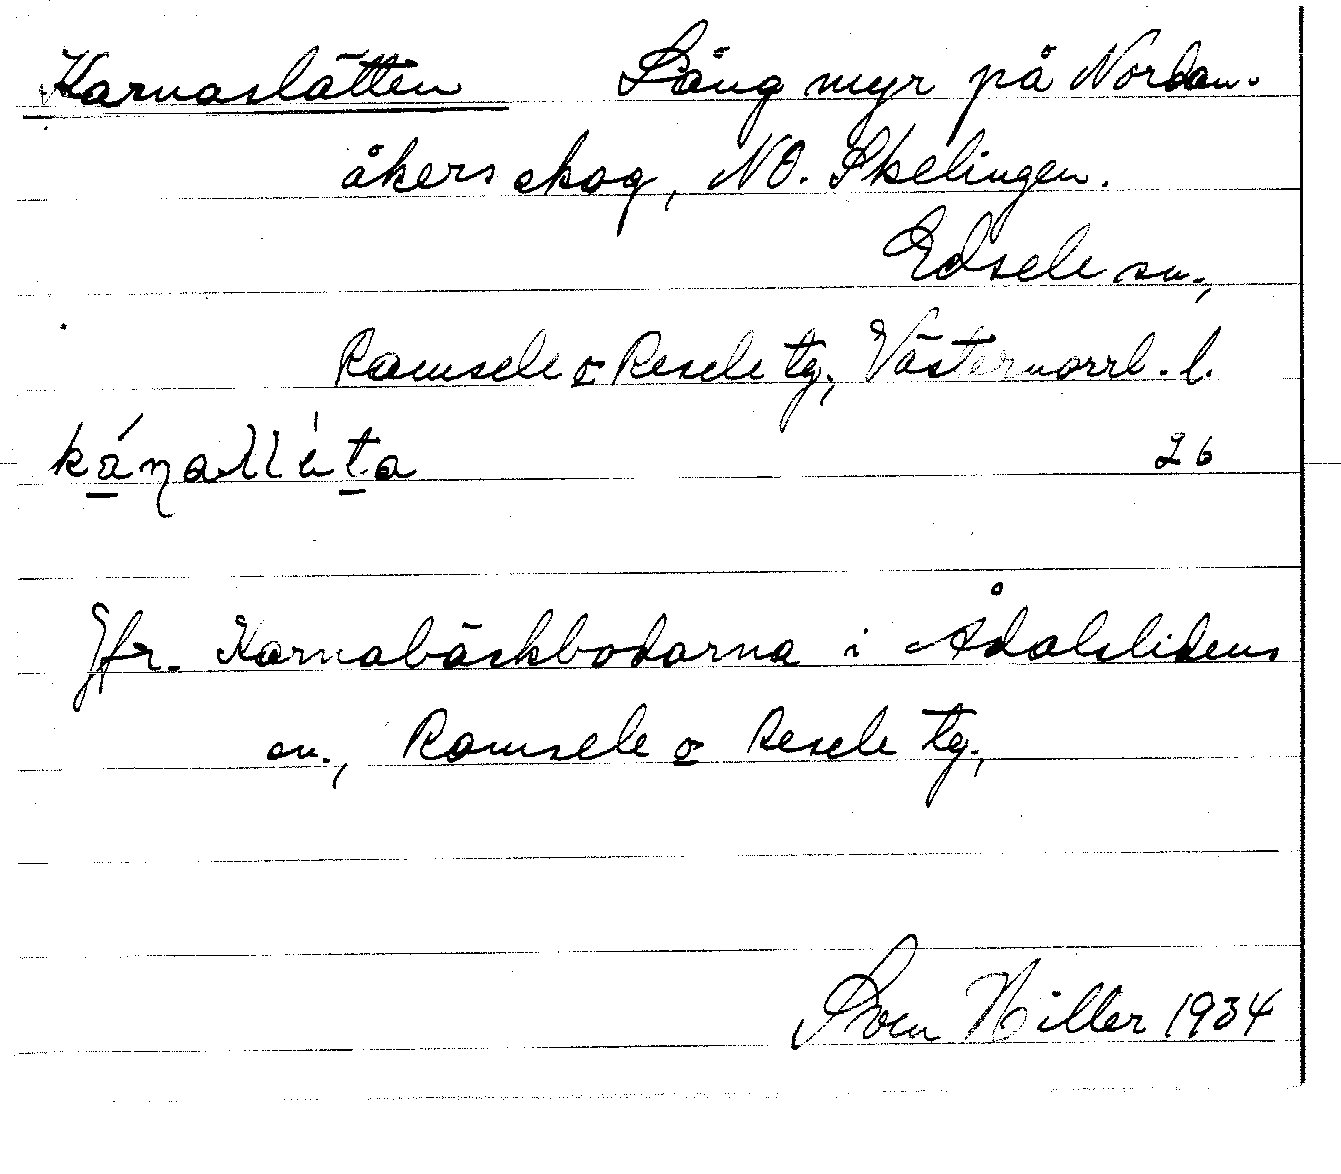 Karnaslåtten Lång myr på Nordan-
åkers skog, NO. Skelingen.
Edsele sn.,
Ramsele o Resele tg., Västernorrl. l.
26
Jfr. Karnabäckbodarna i Ådalslidens
sn., Ramsele o Resele tg.,
Sven Hiller 1934